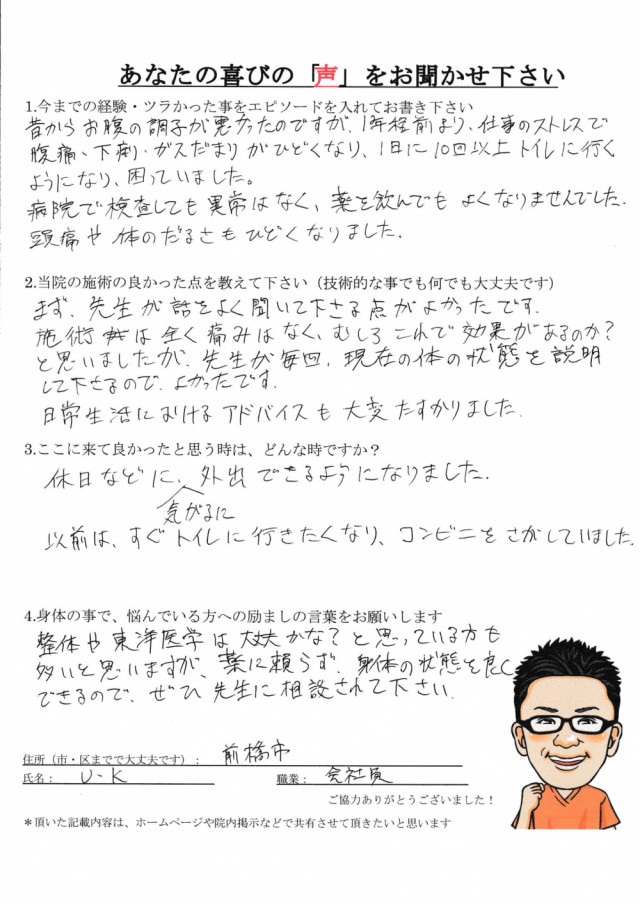 あなたの喜びの「声」をお聞かせ下さい
1.今までの経験・ツラかった事をエピソードを入れてお書き下さい
昔からお腹の調子が悪かったのですが、1年程前より、仕事のストレスで
腹痛、下痢・ガスだまりがひどくなり、1日に10回以上トイレに行く
ようになり、困っていました。
病院で検査しても異常はなく、薬を飲んでもよくなりませんでした。
頭痛や体のだるさもひどくなりました。
2.当院の施術の良かった点を教えて下さい（技術的な事でも何でも大丈夫です）
まず、先生が話をよく聞いて下さる点がよかったです。
施術は全く痛みはなく、むしろこれで効果があるのか？
と思いましたが、先生が毎回、現在の体の状態を説明
して下さるので、よかったです。
日常生活におけるアドバイスも大変たすかりました。
3.ここに来て良かったと思う時は、どんな時ですか？
休日などに、外出できるようになりました。
気がるに
以前は、すぐトイレに行きたくなり、コンビニをさがしていました。
4.身体の事で、悩んでいる方への励ましの言葉をお願いします
整体や東洋医学は大丈夫かな？と思っている方も
多いと思いますが、薬に頼らず、身体の状態を良く
できるので、ぜひ先生に相談されて下さい。
住所（市・区までで大丈夫です）： 前橋市
氏名： U-K 職業： 会社員
ご協力ありがとうございました！
＊頂いた記載内容は、ホームページや院内掲示などで共有させて頂きたいと思います